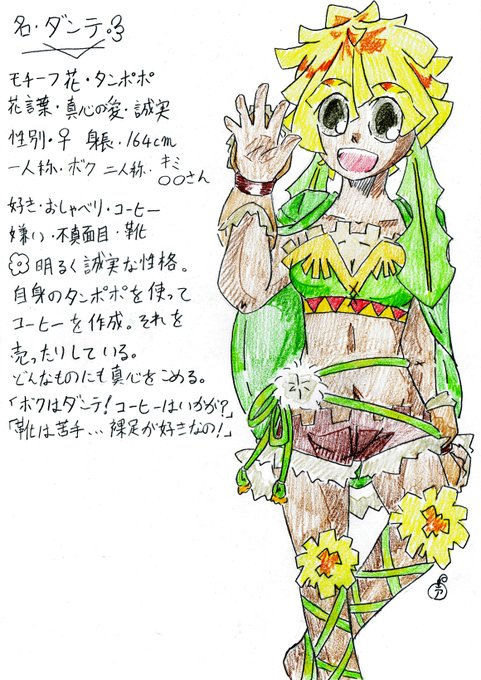 名・ダンテ
モチーフ花・タンポポ
花言葉・真心の愛・誠実
性別・♀ 身長・164cm
一人称・ボク 二人称・キミ
○○さん
好き・おしゃべり・コーヒー
嫌い・不真面目・靴
明るく誠実な性格。
自身のタンポポを使って
コーヒーを作成。それを
売ったりしている。
どんなものにも真心をこめる。
「ボクはダンテ!コーヒーはいかが?」
「靴は苦手…裸足が好きなの!」